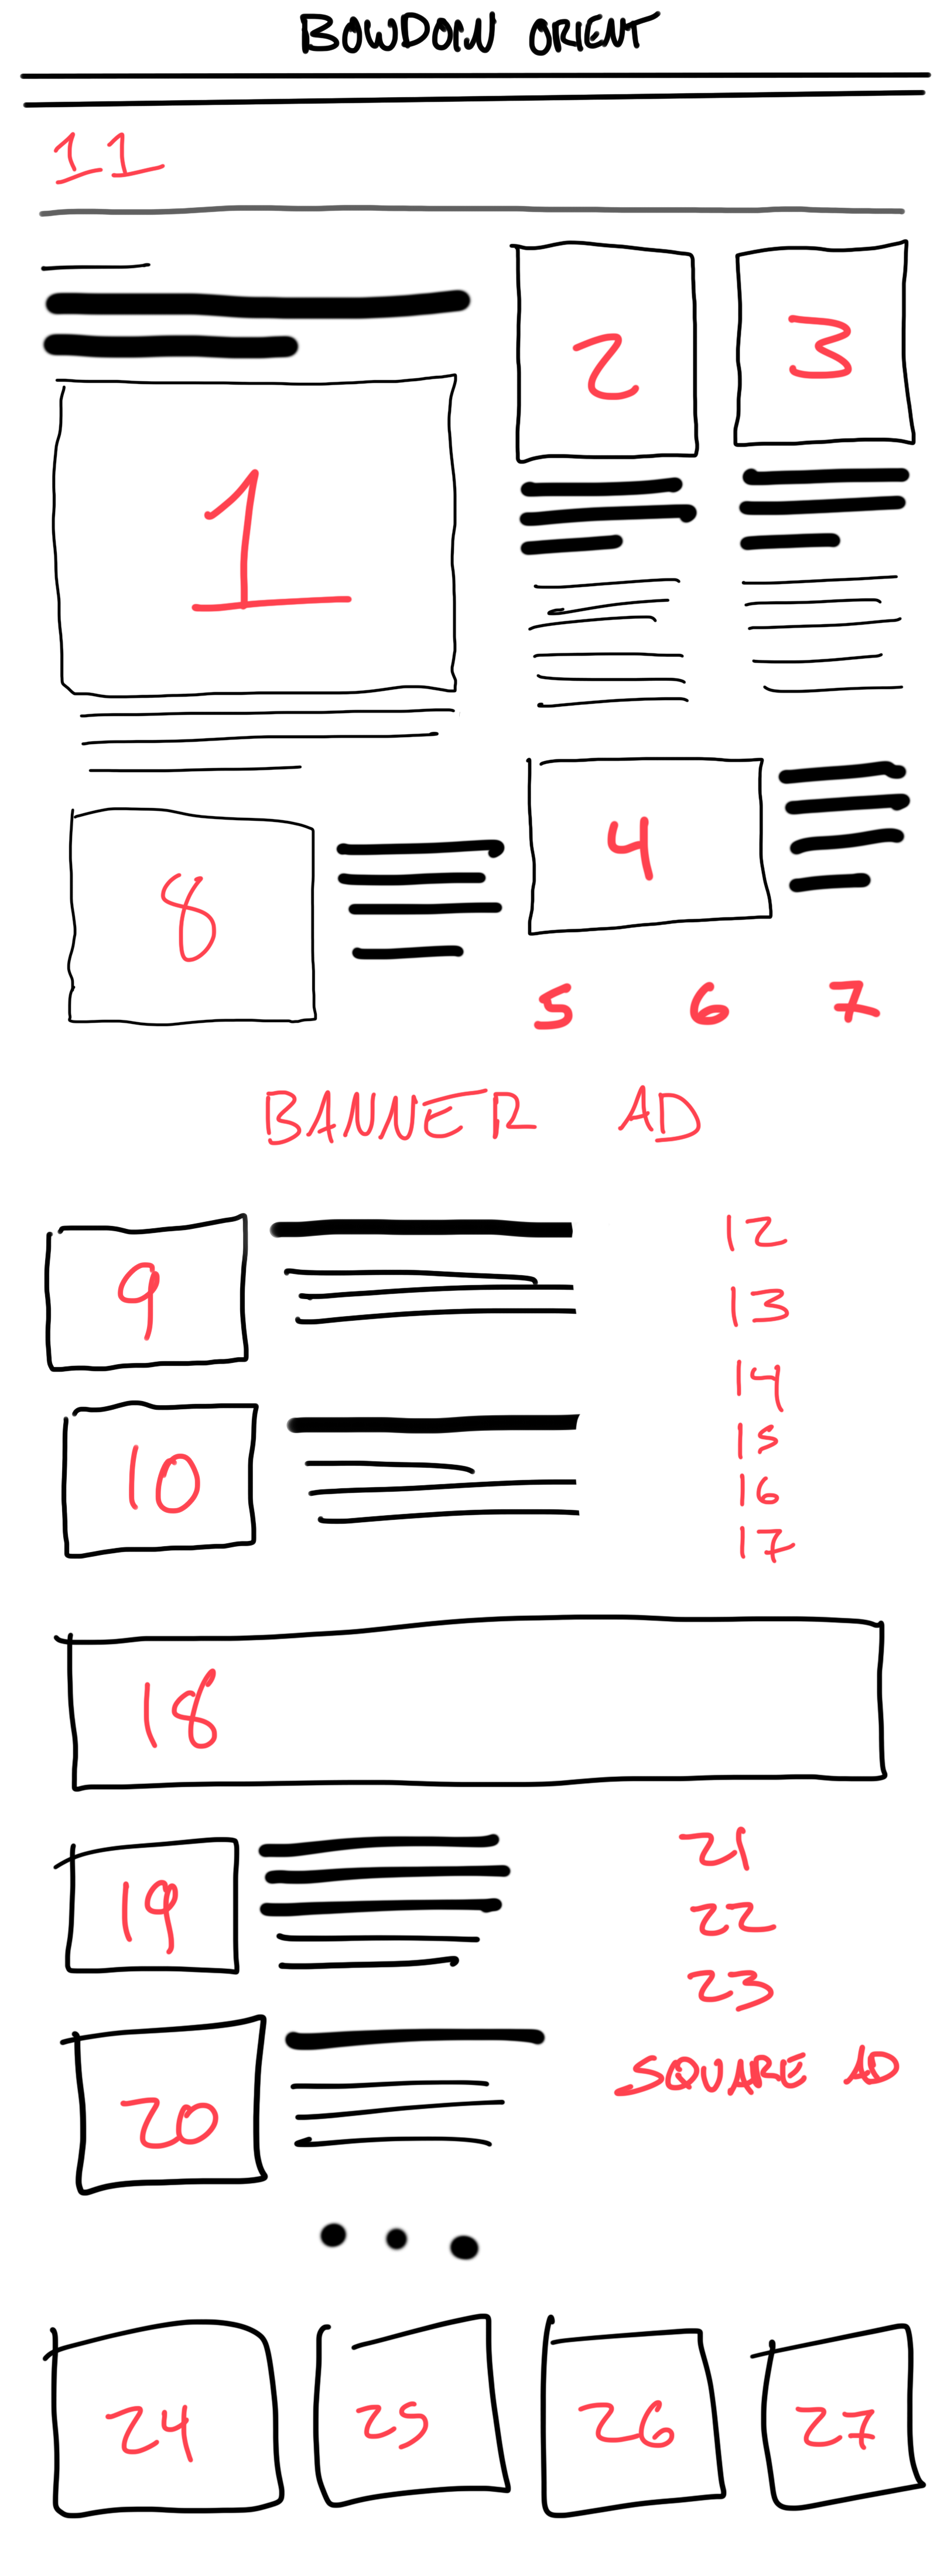 BOWDOIN ORIENT
11
2 3
1
4
8
5 6 7
BANNER AD
9
12
13
14
10
15
16
17
18
19
21
22
23
20
SQUARE AD
24 25 26 27